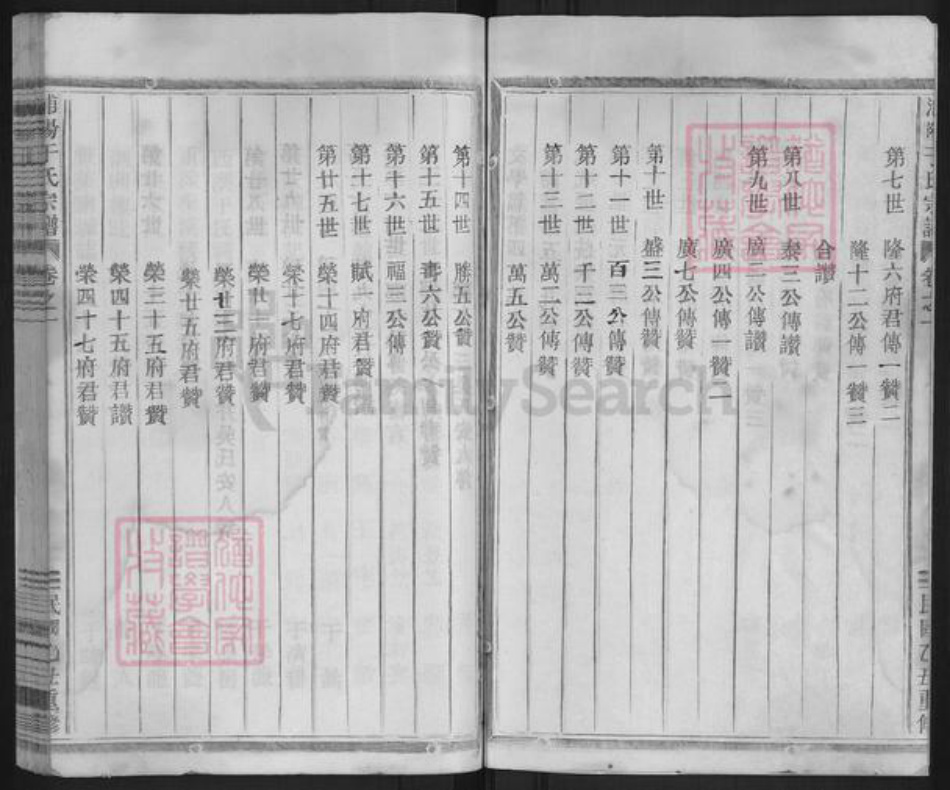 浦陽于氏宗譜 卷之一 民國乙丑重修
第七世 隆六府君傳一贊二
隆十二公傳一贊三
合讚
第八世 泰三公傳讚
第九世 廣二公傳讚
廣四公傳一贊二
廣七公傳贊
第十世 盛三公傳贊
第十一世 百三公傳贊
第十二世 千三公傳贊
第十三世 萬二公傳贊
萬五公贊
第十四世 勝五公贊
第十五世 壽六公贊
第十六世 福三公傳
第十七世 賦八府君贊
第廿五世 榮十四府君贊
榮十七府君贊
榮廿二府君贊
榮廿三府君贊
榮廿五府君贊
榮三十五府君贊
榮四十五府君讚
榮四十七府君贊
浦陽于氏宗譜 卷之一 民國乙丑重修
FamilySearch